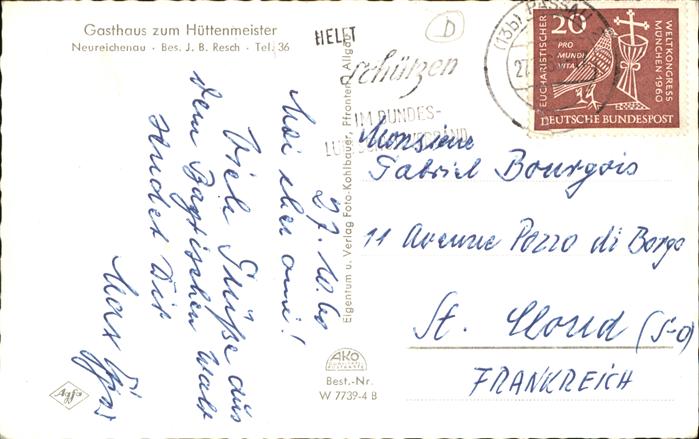 Gasthaus zum Hüttenmeister
Neureichenau · Bes. J. B. Resch · Tel. 36
27.10.60
Moi cher ami!
Viele Grüße aus
dem Bayrischen Wald
sendet Dir
Max
Eigentum u. Verlag Foto-Kohlbauer, Pfronten, Allgäu
HELFT
schützen
IM BUNDES-
(13b) PASSAU
27.
EUCHARISTISCHER
WELTKONGRESS
MÜNCHEN 1960
20
PRO
MUNDI
VITA
DEUTSCHE BUNDESPOST
D
Monsieur
Gabriel Bourgois
11 Avenue Pozzo di Borgo
St. Cloud (S-O)
FRANKREICH
AKO
Best.-Nr.
W 7739-4 B
Agfa